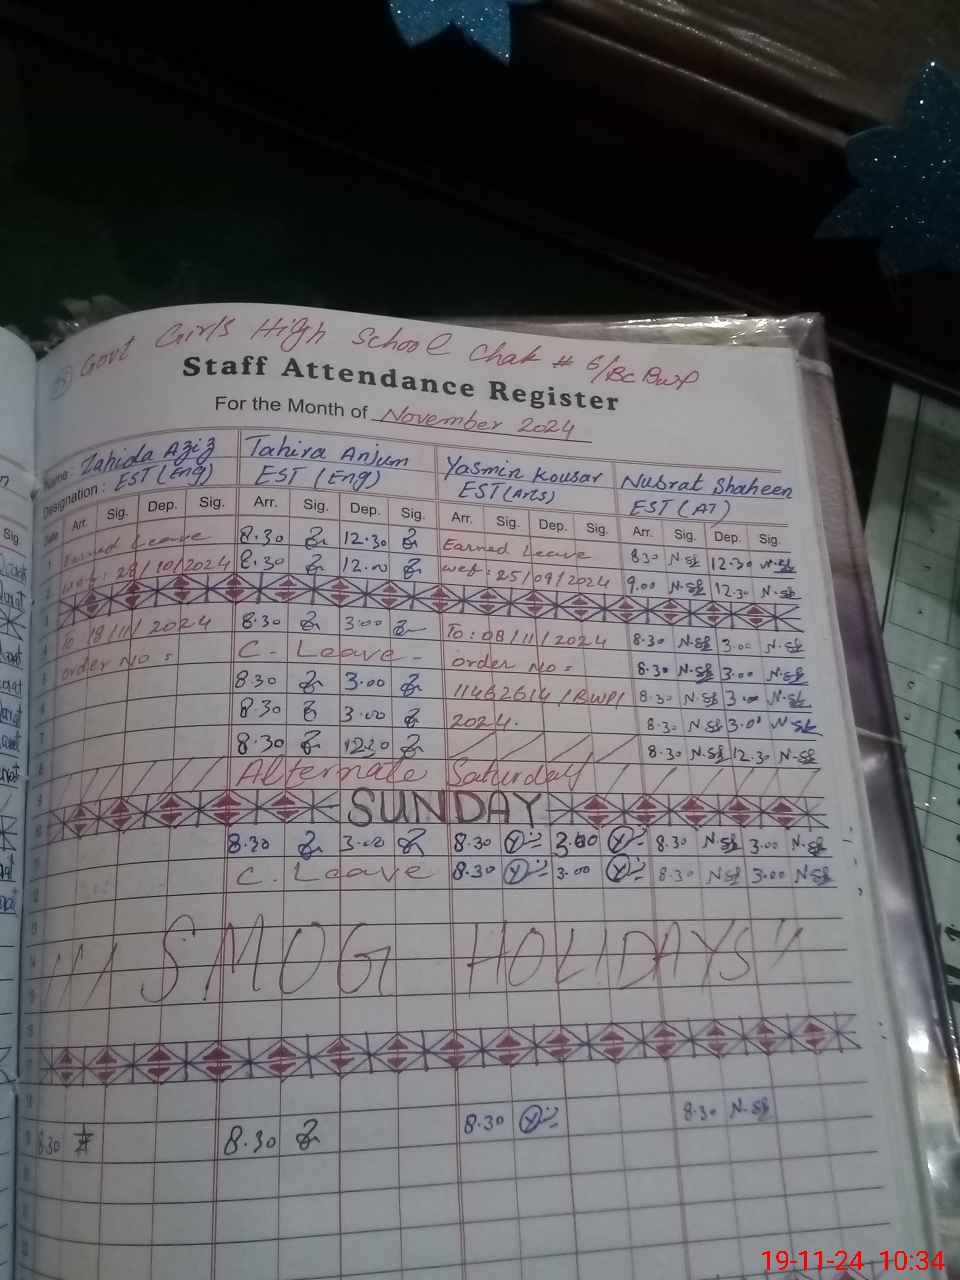 Govt Girls High School Chak # 6/BC BWP
Staff Attendance Register
For the Month of November 2024
Name: Zahida Aziz Tahira Anjum Yasmin Kousar Nusrat Shaheen
Designation: EST (Eng) EST (Eng) EST (Arts) EST (AT)
Date Arr. Sig. Dep. Sig. Arr. Sig. Dep. Sig. Arr. Sig. Dep. Sig. Arr. Sig. Dep. Sig.
1 Earned Leave 8.30 12.30 Earned Leave 8.30 12.30
2 wef: 28/10/2024 8.30 12.00 wef: 25/09/2024 9.00 12.30
To 18/11/2024 8.30 3.00 To: 08/11/2024 8.30 3.00
order No = C. Leave order No = 8.30 3.00
8.30 3.00 11462614/BWP/ 8.30 3.00
8.30 3.00 2024. 8.30 3.00
8.30 12.30 8.30 12.30
Alternate Saturday
SUNDAY
8.30 3.00 8.30 3.00 8.30 3.00
C. Leave 8.30 3.00 8.30 3.00
SMOG HOLIDAYS
8.30 8.30 8.30 8.30
19-11-24 10:34